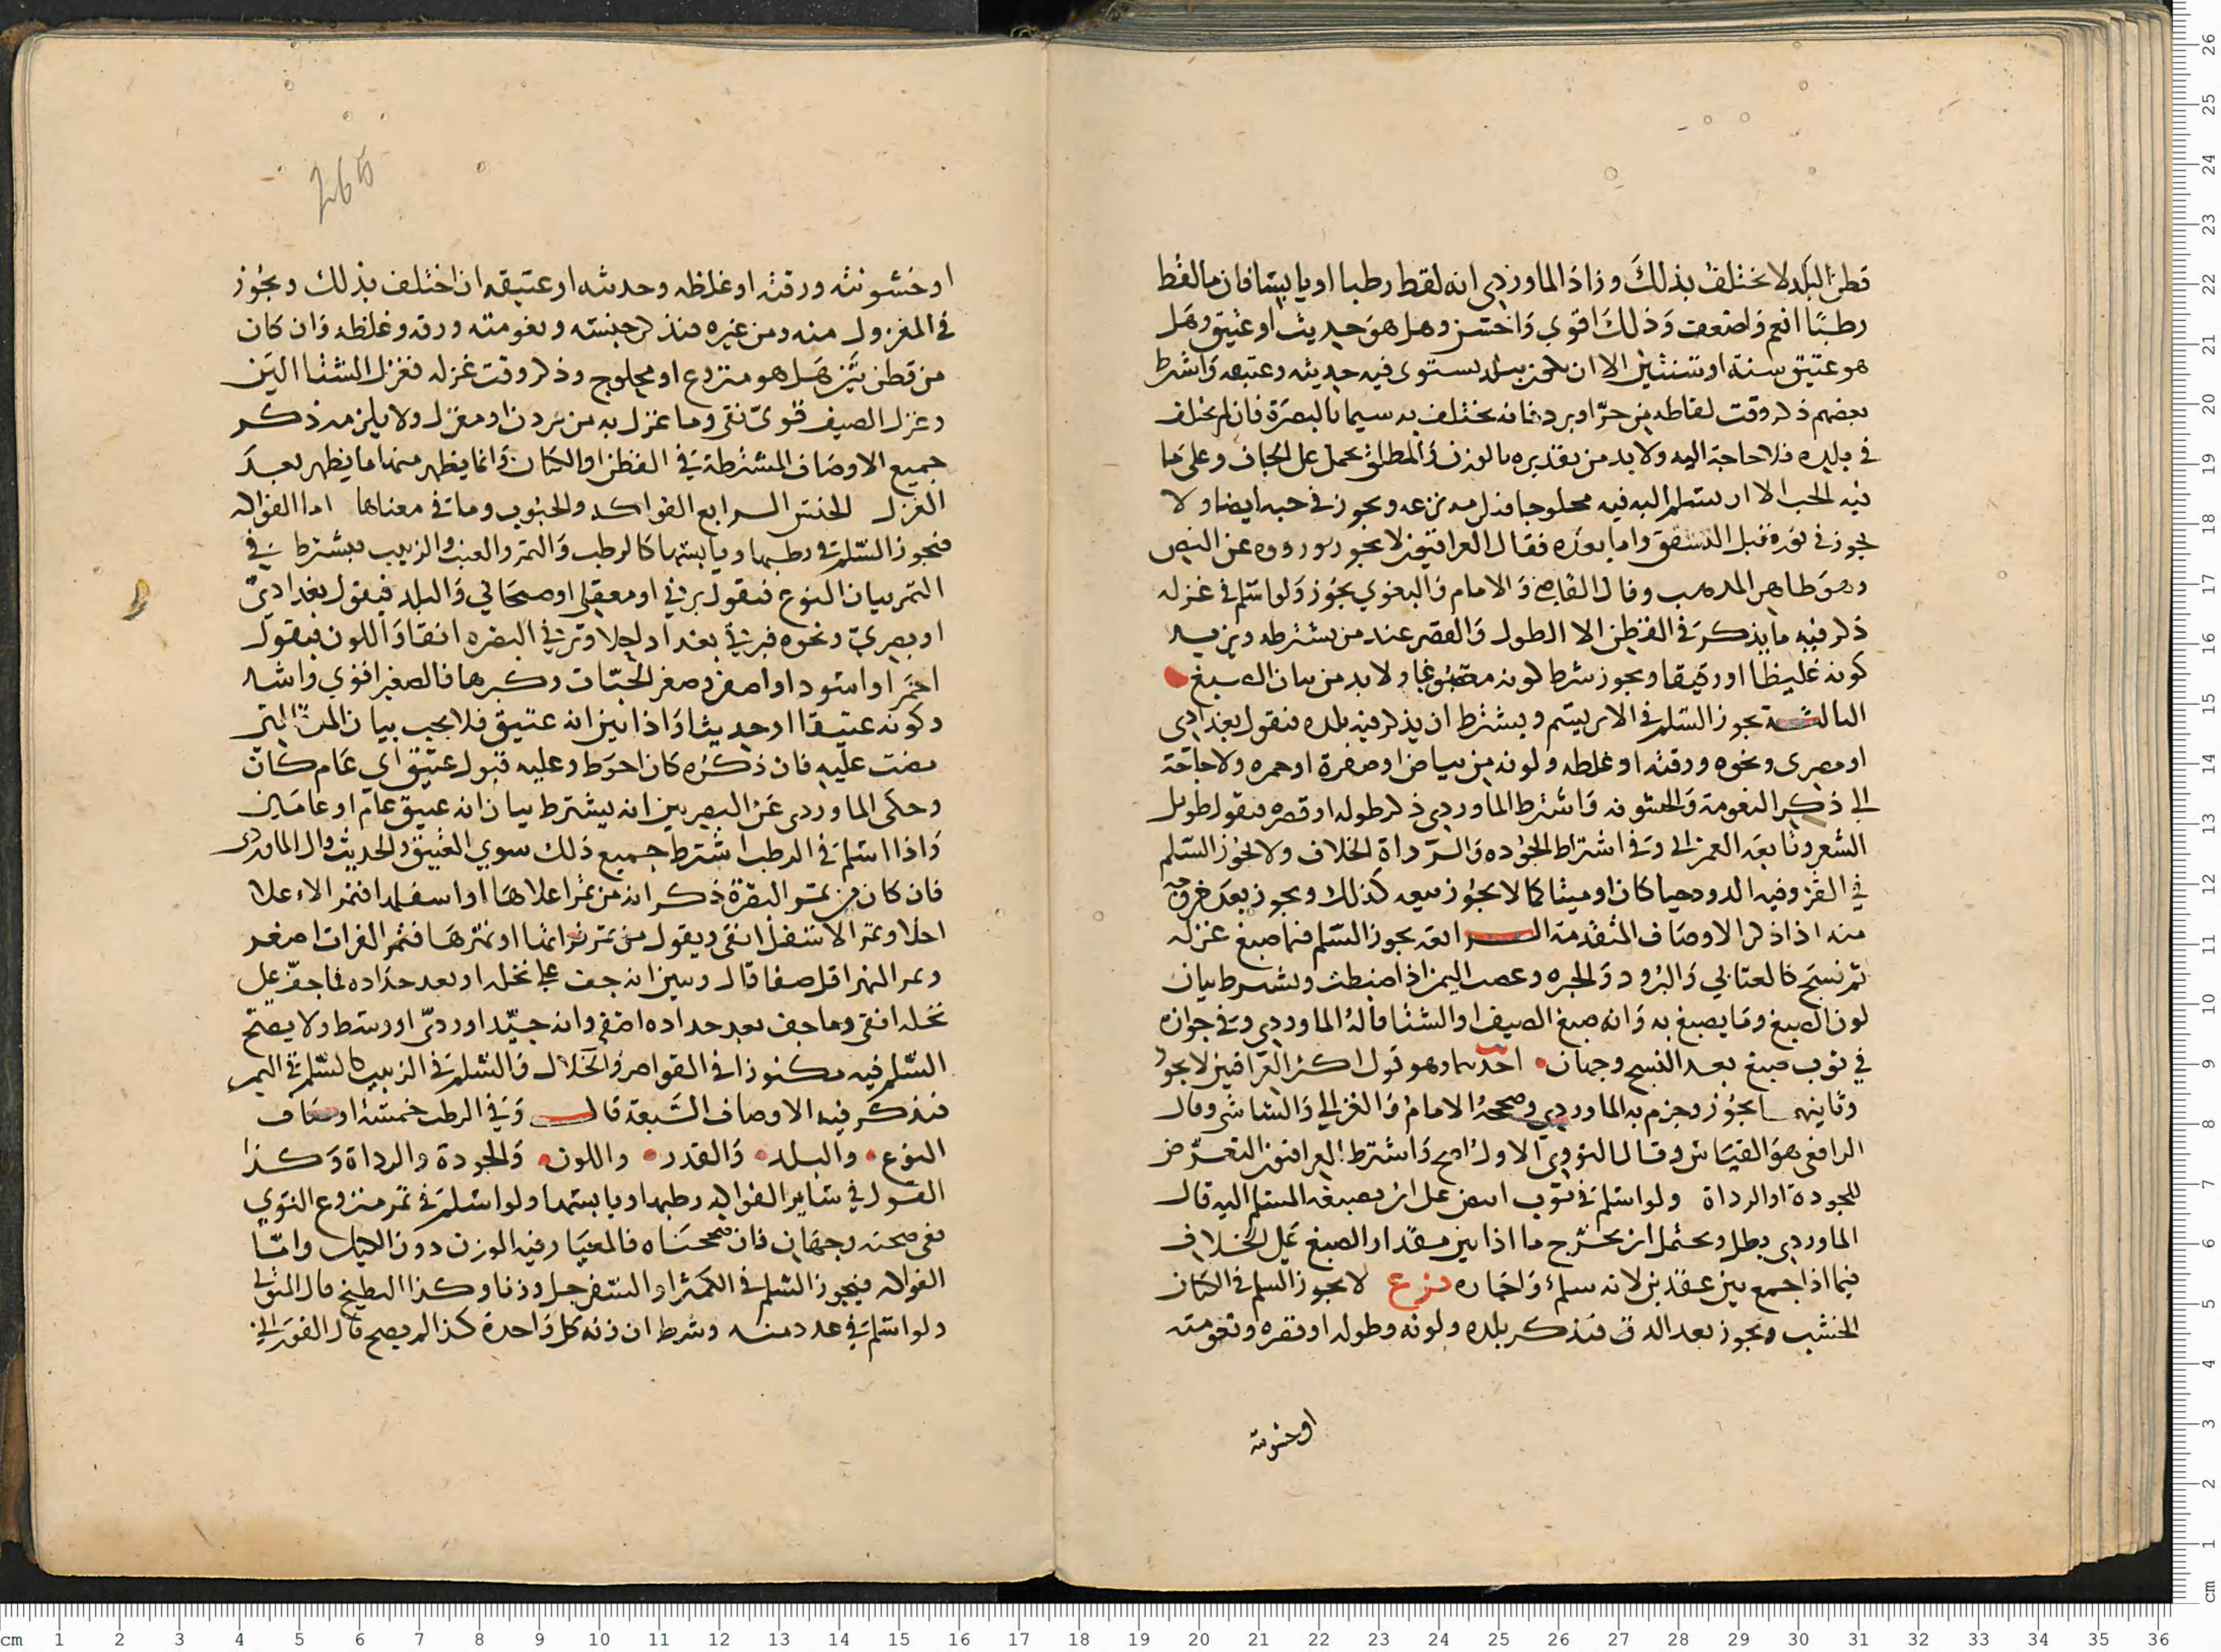 قطن البلد لا يختلف بذلك وزاذ الماوردي انه لقط رطبا او يابسا فان ما لقط
رطبًا انعم واضعف وذلك اقوي واخشن وهل هو حديث او عتيق وهل
هو عتيق سنة او سنتين الا ان يكون ببلد يستوى فيه حديثه وعتيقه واشترط
بعضهم ذكر وقت لقاطه من حرّ او برد فانه يختلف به سيما بالبصرة فان لم يختلف
في بلده فلا حاجة اليه ولا بد من تقديره بالوزن والمطلق يحمل على الجاف وعلى ما
فيه الحب الا ان يسلم اليه فيه محلوجا فذكر مدة نزعه ويجوز في حبه ايضا ولا
يجوز في جوزه قبل التشقق واما بعده فقال العراقيون لا يجوز ورووه عن النص
وهو ظاهر المذهب وقال القاضي والامام والبغوي يجوز ولو اسلم في غزله
ذكر فيه ما يذكر في القطن الا الطول والقصر عند من يشترطه ويزيد
كونه غليظا او دقيقا ويجوز شرط كونه مصبوغا ولا بد من بيان الصبغ
الثالثة يجوز السلم في الابريسم ويشترط ان يذكر فيه بلده فيقول بغدادي
او مصرى ونحوه ورقته او غلظه ولونه من بياض او صفرة او حمره ولا حاجة
الى ذكر النعومة والخشونه واشترط الماوردي ذكر طوله او قصره فيقول طويل
الشعر وتابعه العمراني وفي اشتراط الجوده والرداة الخلاف ولا يجوز السلم
في القز وفيه الدود حيا كان او ميتا كما لا يجوز بيعه كذلك ويجوز بعد خروجه
منه اذا ذكر الاوصاف المتقدمة الرابعة يجوز السلم فيما صبغ غزله
ثم نسج كالعتابي والبرود والحبره وعصب اليمن اذا ضبطت ويشترط بيان
لون الصبغ وما يصبغ به وانه صبغ الصيف او الشتا قاله الماوردي وفي جوازه
في ثوب صبغ بعد النسج وجهان احدهما وهو قول اكثر العراقيين لا يجوز
وثانيهما يجوز وجزم به الماوردي وصححه الامام والغزالي والشاشي وقال
الرافعي هو القياس وقال النووي الاول اصح واشترط العراقيون التعرّض
للجودة او الرداة ولو اسلم في ثوب ابيض على ان يصبغه المسلم اليه قال
الماوردي بطل ويحتمل ان يخرج ما اذا بين مقدار الصبغ على الخلاف
فيما اذا جمع بين عقدين لانه سلم واجاره فرع لا يجوز السلم في الكتان
الخشب ويجوز بعد الدق فيذكر بلده ولونه وطوله او قصره ونعومته
او خشونته
او خشونته ورقته او غلظه وحدثه او عتيقه ان اختلف بذلك ويجوز
في المغزول منه ومن غيره فيذكر جنسه ونعومته ورقه وغلظه وان كان
من قطن بيّن هل هو منزوع او محلوج وذكر وقت غزله فغزل الشتا الين
وغزل الصيف قوىّ نقى وما غزل به من مردن او مغزل ولا يلزمه ذكر
جميع الاوصاف المشترطة في القطن او الكتان وانما يظهر منها ما يظهر بعد
الغزل الجنس الرابع الفواكه والحبوب وما في معناها اما الفواكه
فيجوز السلم في رطبها ويابسها كالرطب والتمر والعنب والزبيب فيشترط في
التمر بيان النوع فيقول برني او معقلي او صيحاني والبلد فيقول بغدادىّ
او بصري ونحوه فبرني بغداد احلا وبرني البصره انقا واللون فيقول
احمر او اسود او اصفر وصغر الحبّات وكبرها فالصغير اقوي واشد
وكونه عتيقا او حديثا واذا بين انه عتيق فلا يجب بيان المدة التي
مضت عليه فان ذكره كان احوط وعليه قبول عتيق اي عام كان
وحكى الماوردى عن البصريين انه يشترط بيان انه عتيق عام او عامين
واذا اسلم في الرطب اشترط جميع ذلك سوي العتيق والحديث وقال الماوردى
فان كان من تمر البصرة ذكر انه من تمر اعلاها او اسفلها فتمر الاعلا
احلا وتمر الاسفل انقى ويقول من تمر فراتها او نهرها فتمر الفرات اصغر
وتمر النهر اقل صفا قال ويبين انه جف على نخله او بعد جذاده فما جفّ على
نخله انقى وما جف بعد جذاده اصفى وانه جيّد او رديّ او وسط ولا يصح
السّلم فيه مكنوزا في القواصر والخلال والسلم في الزبيب كالسّلم في التمر
فيذكر فيه الاوصاف السبعة قال وفي الرطب خمسة اوصاف
النوع والبلد والقدر واللون والجودة والرداة وكذا
القول في ساير الفواكه رطبها ويابسها ولو اسلم في تمر منزوع النوي
ففي صحته وجهان فان صححناه فالمعيار فيه الوزن دون الكيل وامّا
الفواكه فيجوز السلم في الكمثرا والسفرجل وزنا وكذا البطيخ قال المتولي
ولو اسلم في عدد منه وشرط ان زنه كل واحدة كذا لم يصح قال الفوراني